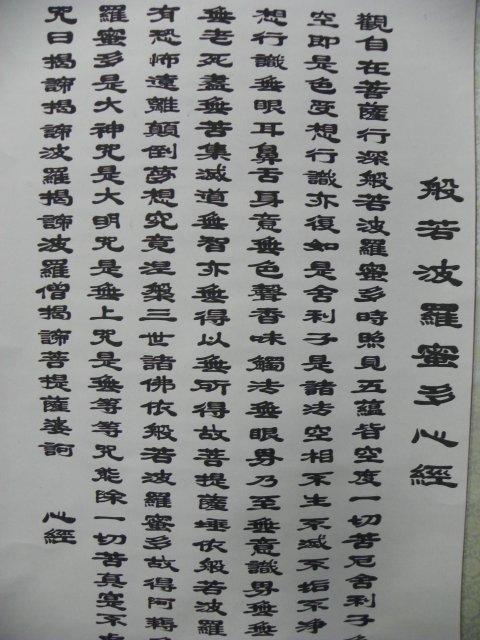 般若波羅蜜多心經
觀自在菩薩行深般若波羅蜜多時照見五蘊皆空度一切苦厄舍利子
空即是色受想行識亦復如是舍利子是諸法空相不生不滅不垢不淨
想行識無眼耳鼻舌身意無色聲香味觸法無眼界乃至無意識界無無
無老死盡無苦集滅道無智亦無得以無所得故菩提薩埵依般若波羅
有恐怖遠離顛倒夢想究竟涅槃三世諸佛依般若波羅蜜多故得阿耨
羅蜜多是大神咒是大明咒是無上咒是無等等咒能除一切苦真實不
咒曰揭諦揭諦波羅揭諦波羅僧揭諦菩提薩婆訶 心經